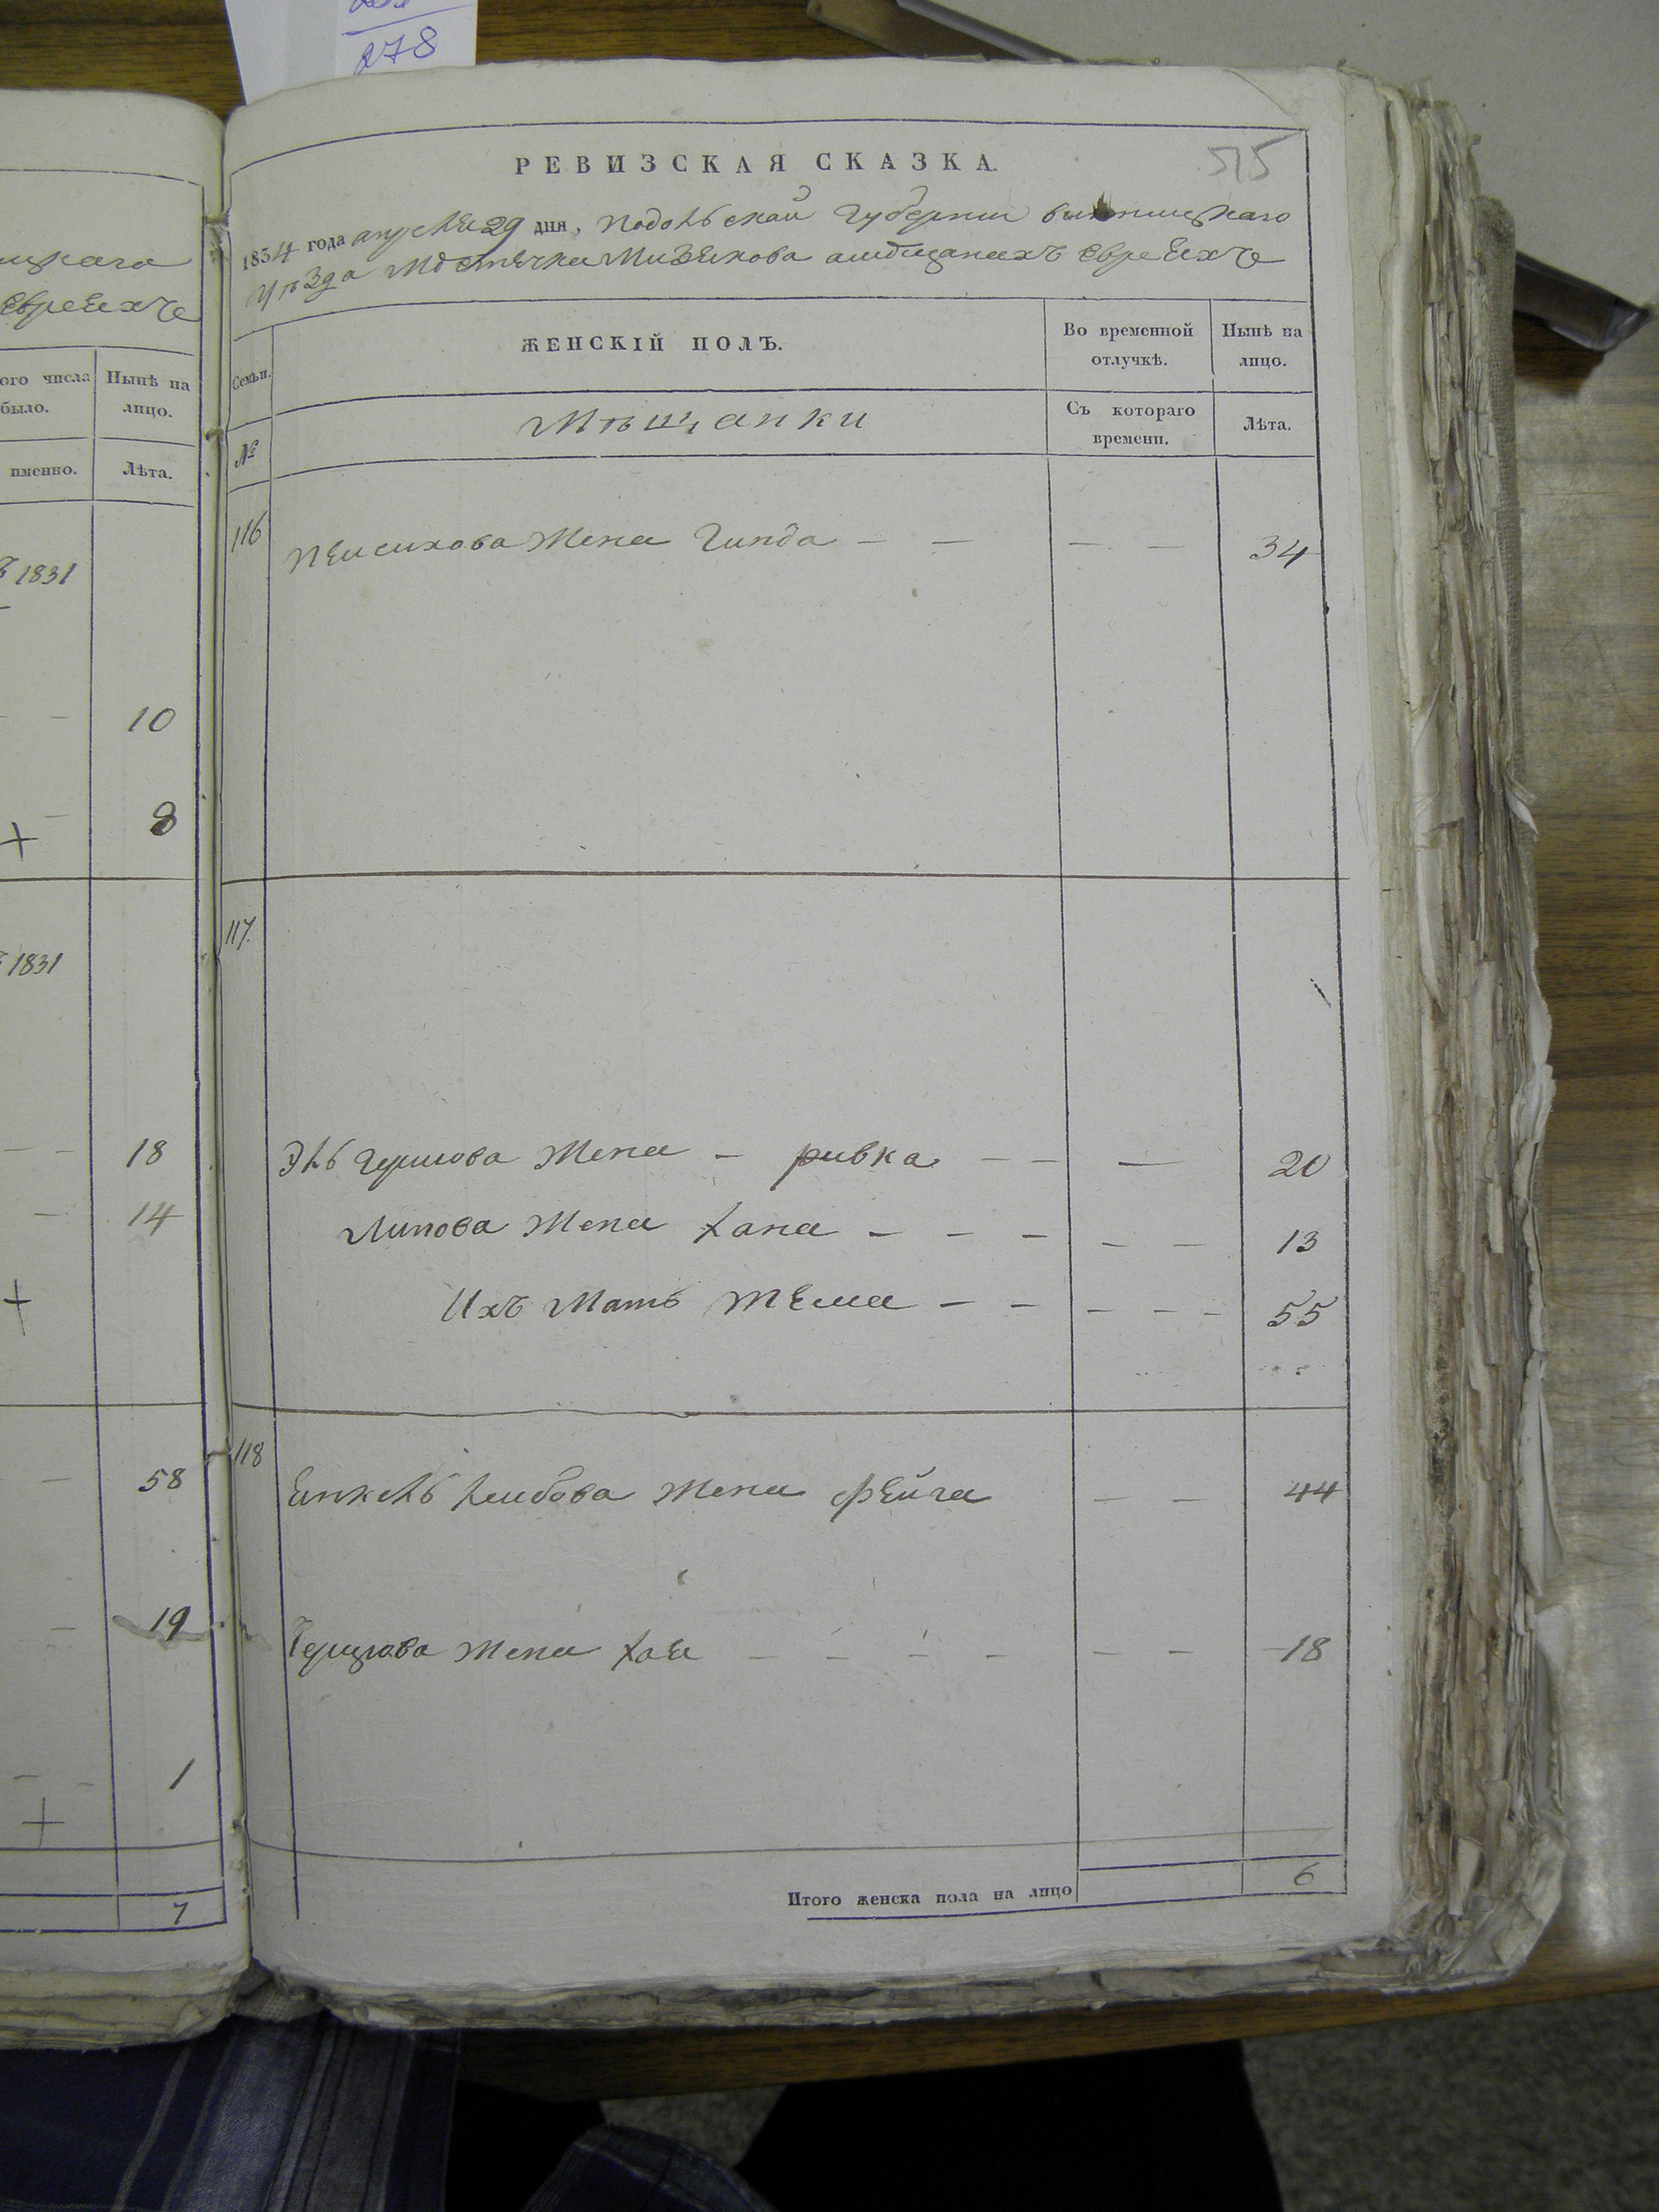 278
ицкаго
Евреехъ
ого числа
было.
Нынѣ на
лицо.
именно.
Лѣта.
1831
10
8
1831
18
14
58
19
1
7
РЕВИЗСКАЯ СКАЗКА.
515
1854 года апреля 29 дня, Подольской Губернии Винницкаго
Уѣзда Мѣстечка Мизякова омѣщанахъ Евреехъ
Семьи.
ЖЕНСКІЙ ПОЛЪ.
Во временной
отлучкѣ.
Нынѣ на
лицо.
№
Мѣщанки
Съ котораго
времени.
Лѣта.
116
Пейсихова Жена Гинда — — — — 34
117.
Эль Гершова Жена — ривка — — — 20
Липова Жена Хана — — — — — 13
Ихъ Мать Тема — — — — — 55
118
Янкель Лейбова Жена Фейга — — 44
Герцкова Жена Хая — — — — — — 18
Итого женска пола на лицо
6